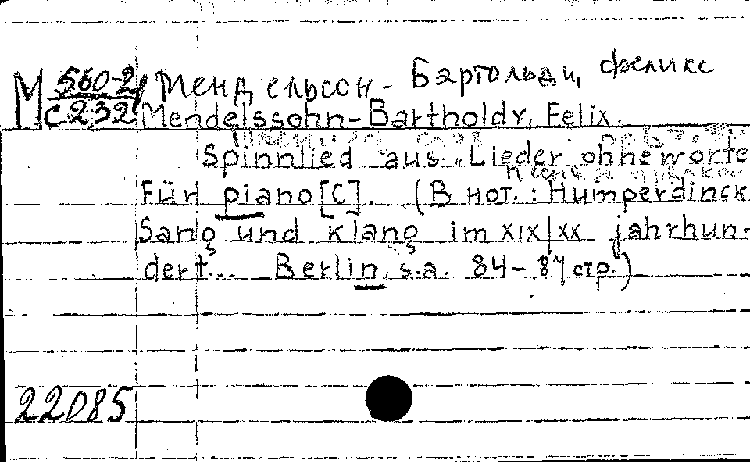 М 560-2/С232 Мендельсон-Бартольди, Феликс
Mendelssohn-Bartholdy, Felix.
Spinnlied aus Lieder ohne worte
Für piano[C]. (В нот.: Humperdinck
Sang und Klang im XIX/XX jahrhun-
dert... Berlin, s.a. 84-87 стр.)
22085